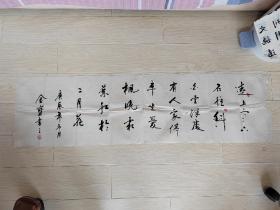 遠上寒山
石徑斜
白雲深處
有人家停
車坐愛
楓晚霜
葉紅於
二月花
庚辰年